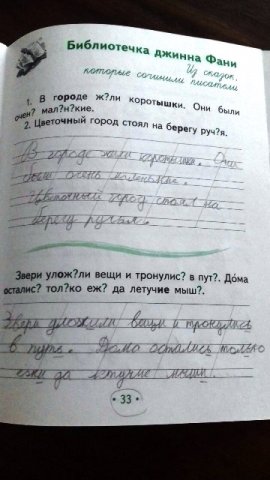 Библиотечка джинна Фани
Из сказок,
которые сочинили писатели
1. В городе ж?ли коротышки. Они были
очен? мал?н?кие.
2. Цветочный город стоял на берегу руч?я.
В городе жили коротышки. Они
были очень маленькие.
Цветочный город стоял на
берегу ручья.
Звери улож?ли вещи и тронулис? в пут?. До́ма
осталис? тол?ко еж? да летучие мыш?.
Звери уложили вещи и тронулись
в путь. Дома остались только
ежи да летучие мыши.
• 33 •